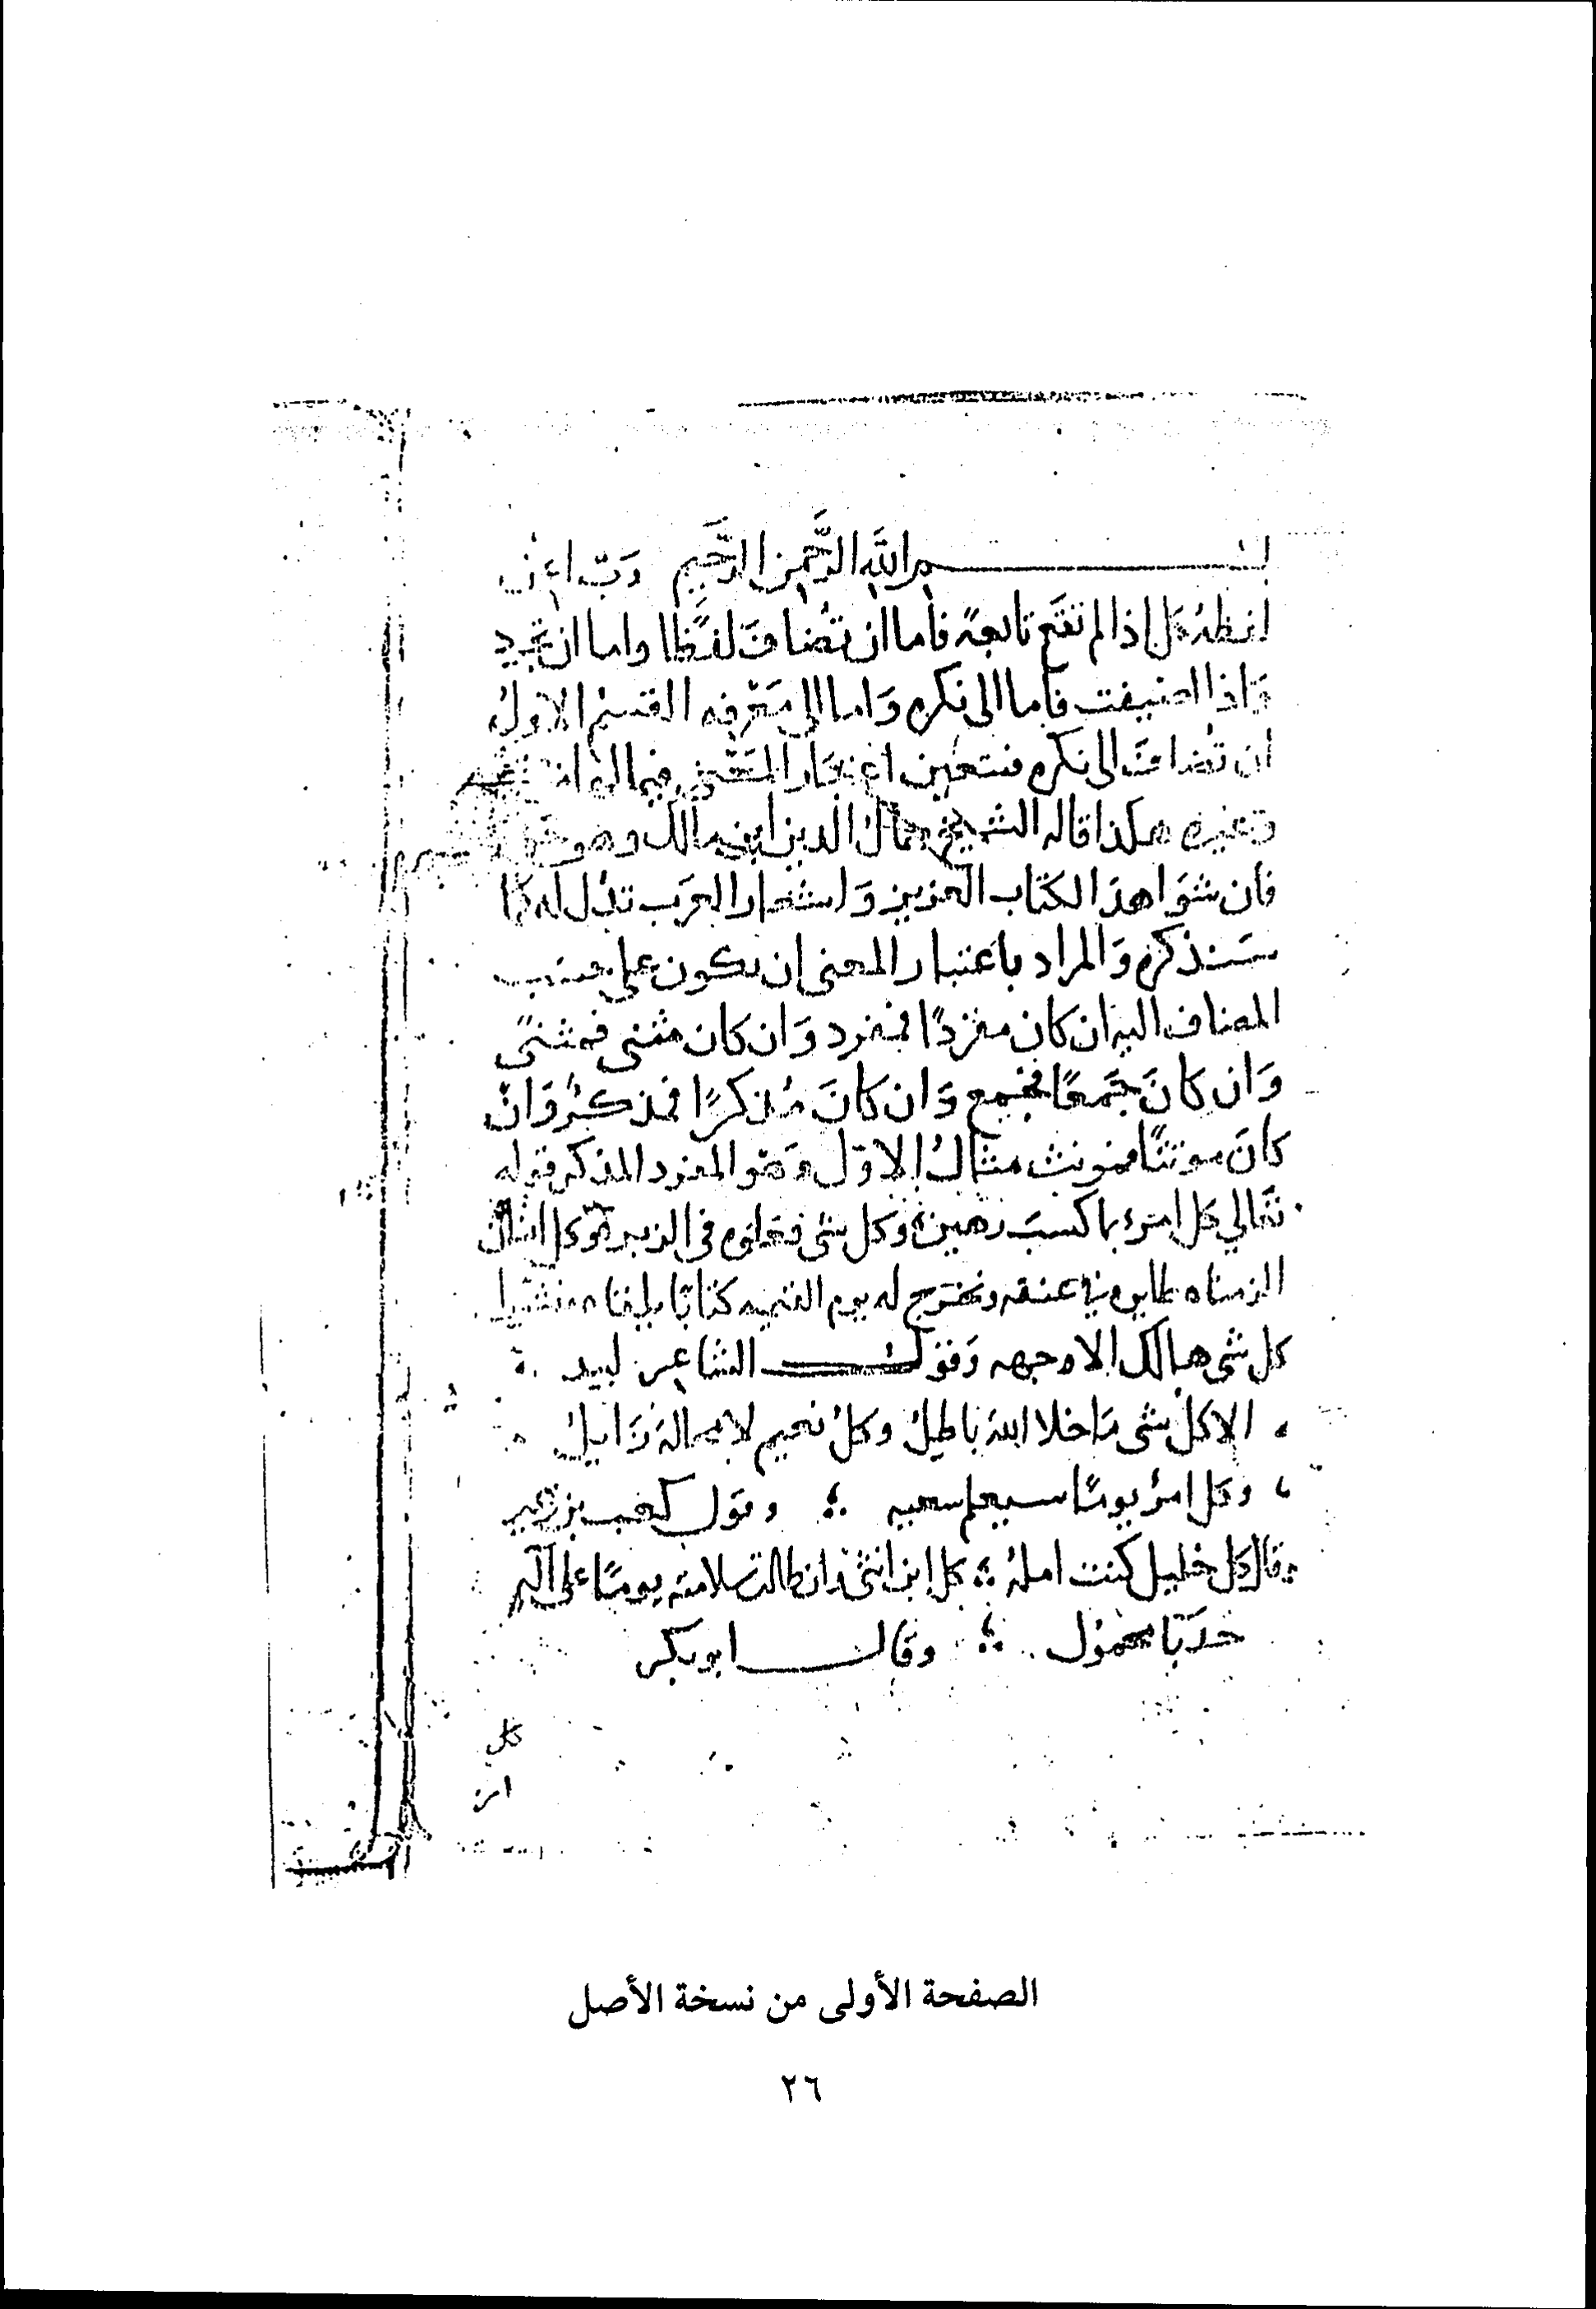 بسم الله الرَّحمن الرَّحيم رَبّ اعن
لفظه كل اذا لم تقَع تابعةً فأما ان تُضافَ لفظًا واما ان تجرد
وَاذا اضيفت فاما الى نكره وَاما الى مَعْرفه القسْم الاولُ
ان تُضافَ الى نكره فيتعين اعتبار المَعْنى فيما لها من
وغيره هكذا قاله الشيخ جمالُ الدين ابن مالك وهو
فان شَوَاهدَ الكتاب العَزيز وَاشعار العرَب تدُل له كما
سَنذكره وَالمراد باعتبار المعنى ان يكون على حسَب
المضاف اليه ان كان مفرَدًا فمفرد وَان كان مثنى فمثنىً
وَان كانَ جَمعًا فجمع وَان كانَ مُذكرًا فمذكرُ وَانْ
كانَ مونثًا فمونث مثالُ الاوّل وَهو المفرد المذكر قوله
تَعَالي كل امرء بما كسبَ رهين وكل شى فعَلوه فى الزبر وكل انسانٍ
الزمناه طايره في عنقه ونخرج له يوم القيمه كتابًا يلقاه منشورا
كل شى هالك الا وجهه وَقولُ الشاعر لبيد
الا كل شى مَا خلا اللهَ باطِلُ وكلُ نعيم لا محالة زَايلُ
وكل امرُ يومًا سيعلم سعيه وقول كعب بن زهير
وقال كل خليل كنت املهُ كل ابن انثى وان طالت سلامته يومًا على آلةٍ
حدبَا محمُول وقال ابو بكر
كل
امر
الصفحة الأولى من نسخة الأصل
٢٦